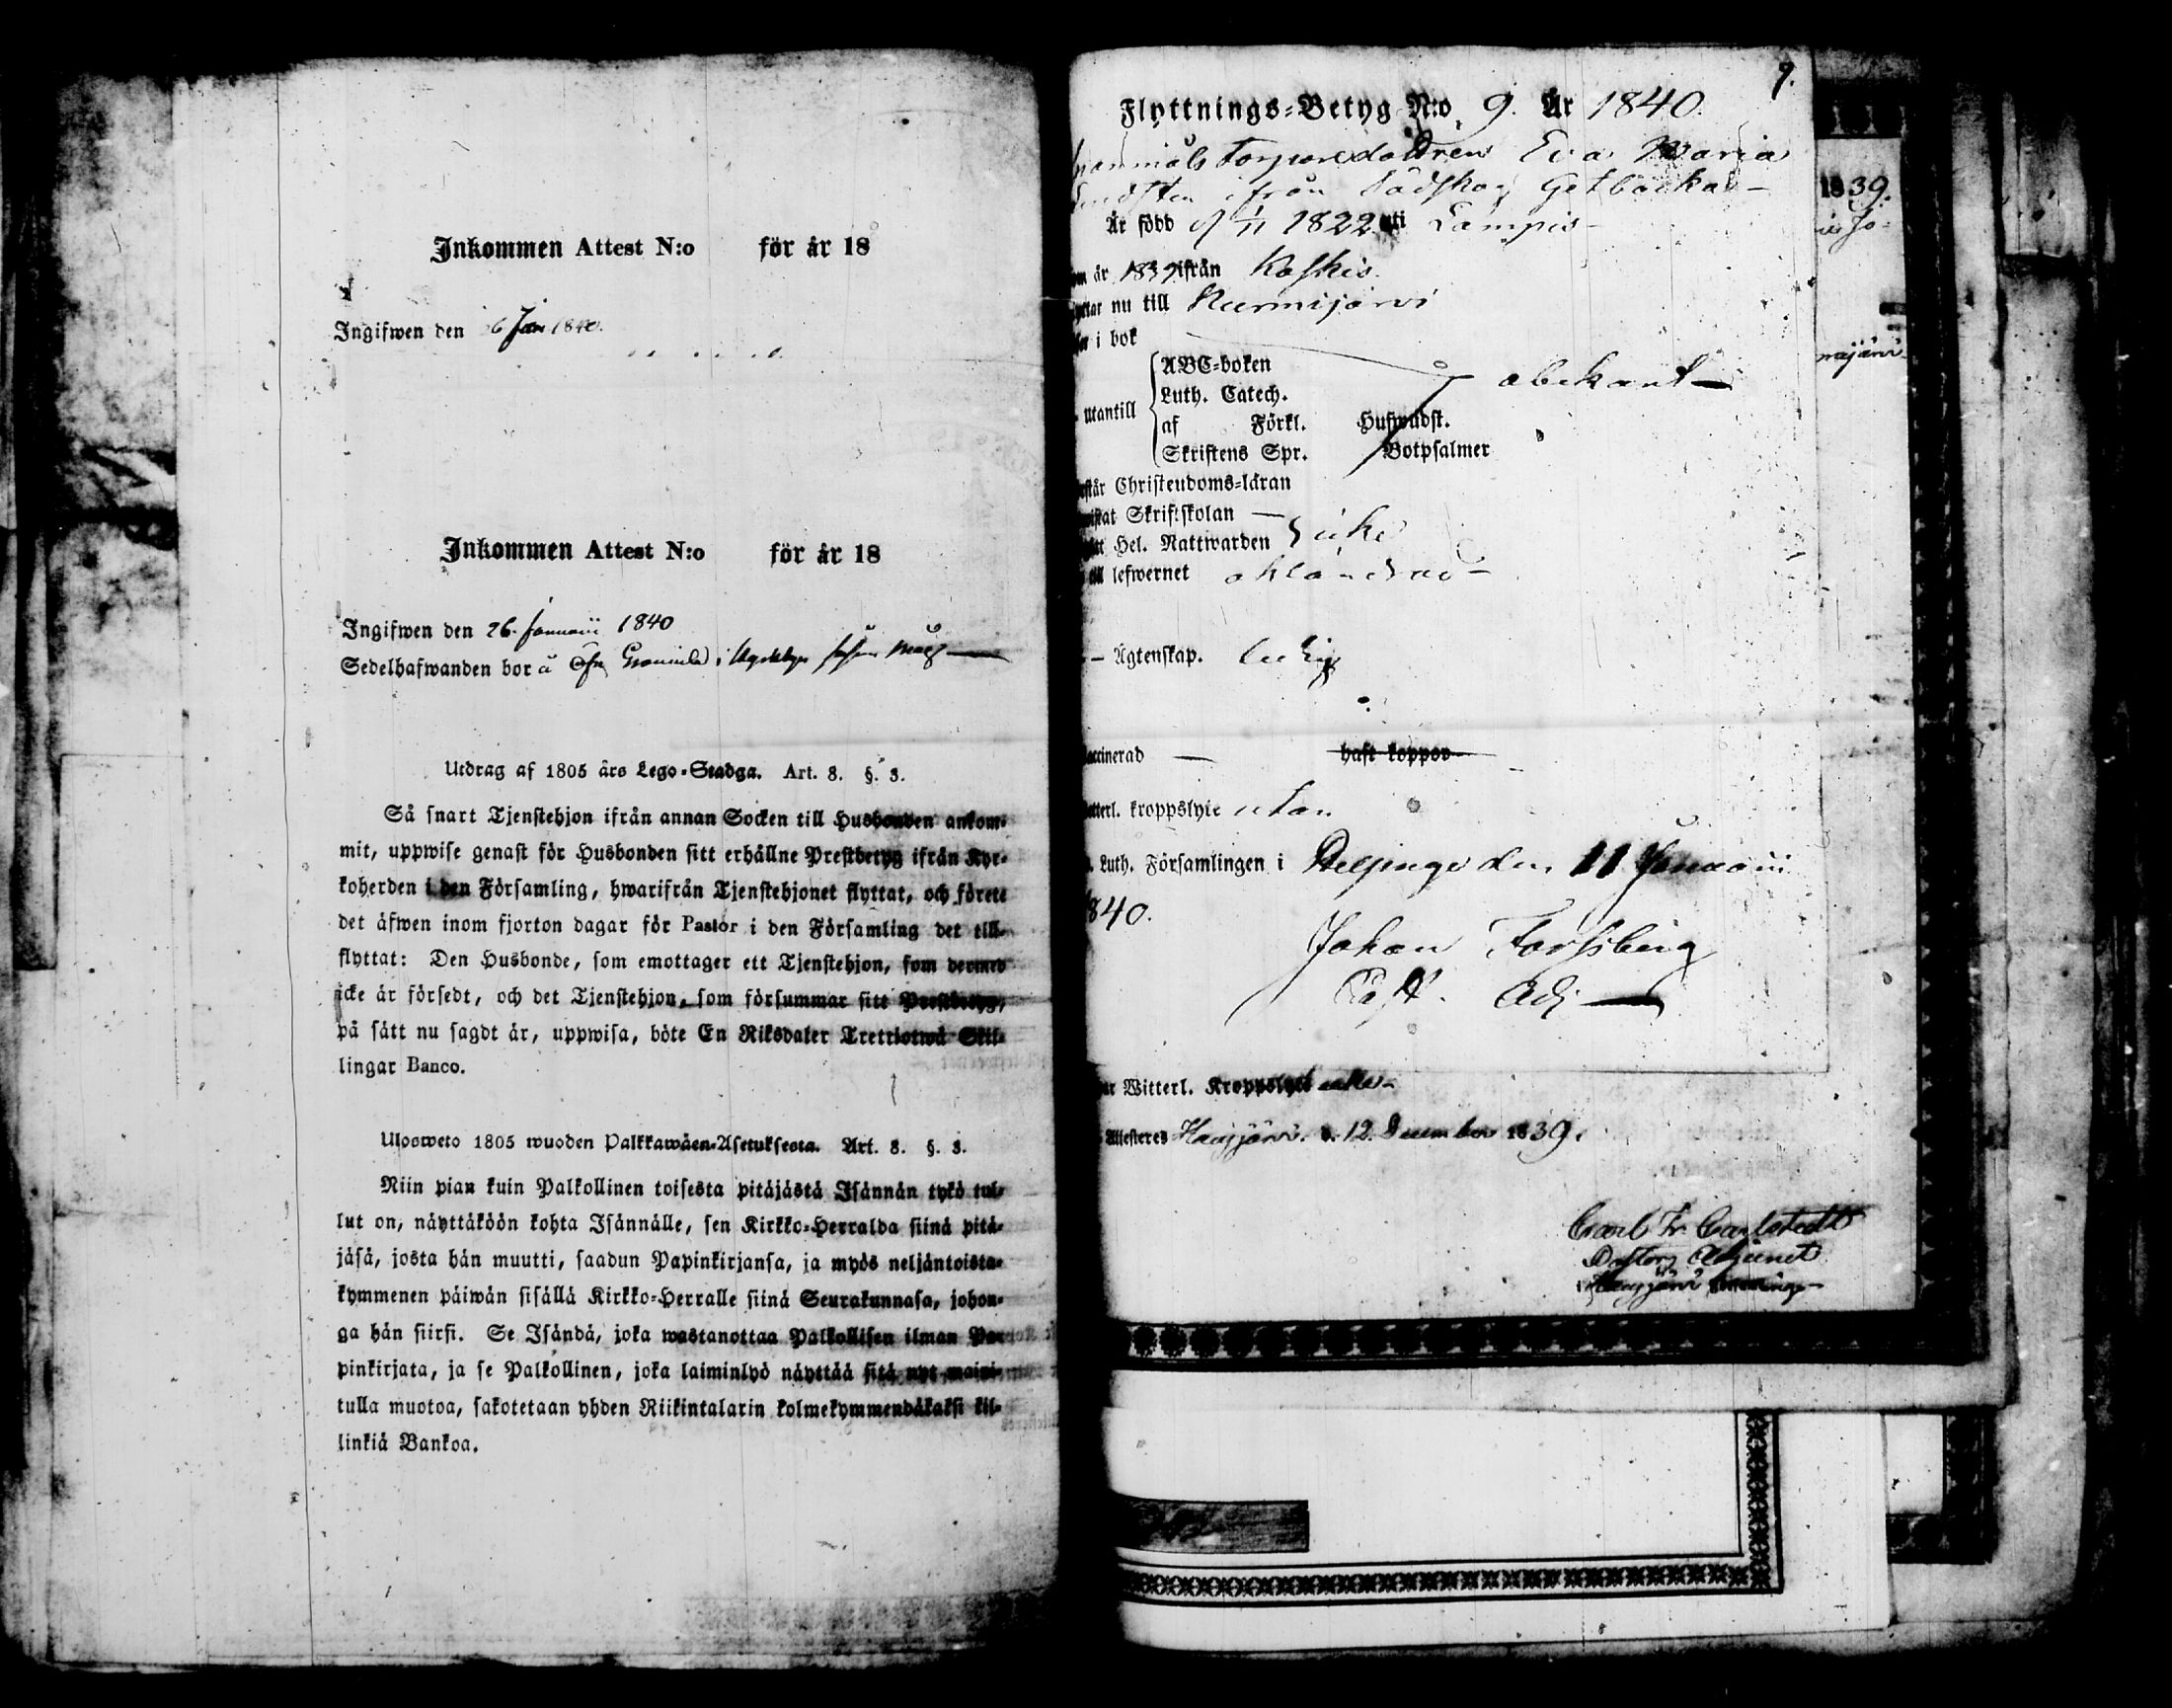 Inkommen Attest N:o för år 18
Ingifwen den 26 Jan 1840.
Inkommen Attest N:o för år 18
Ingifwen den 26. Januarii 1840
Sedelhafwanden bor å
Utdrag af 1805 års Lego-Stadga. Art. 8. §. 3.
Så snart Tjenstehjon ifrån annan Socken till Husbonden ankom-
mit, uppwise genast för Husbonden sitt erhållne Prestbetyg ifrån Kyr-
koherden i den Församling, hwarifrån Tjenstehjonet flyttat, och förete
det äfwen inom fjorton dagar för Pastor i den Församling det till-
flyttat: Den Husbonde, som emottager ett Tjenstehjon, som dermed
icke är försedt, och det Tjenstehjon, som försummar sitt Prestbetyg,
på sätt nu sagdt är, uppwisa, böte En Riksdaler Trettiotwå Skil-
lingar Banco.
Ulosweto 1805 wuoden Palkkawäen-Asetuksesta. Art. 8. §. 3.
Niin pian kuin Palkollinen toisesta pitäjästä Isännän tykö tul-
lut on, näyttäköön kohta Isännälle, sen Kirkko-Herralda siinä pitä-
jäsä, josta hän muutti, saadun Papinkirjansa, ja myös neljäntoista-
kymmenen päiwän sisällä Kirkko-Herralle siinä Seurakunnasa, johon-
ga hän siirsi. Se Isändä, joka wastanottaa Palkollisen ilman Pa-
pinkirjata, ja se Palkollinen, joka laiminlyö näyttää sitä nyt maini-
tulla muotoa, sakotetaan yhden Riikintalarin kolmekymmendäkaksi kil-
linkiä Bankoa.
9.
Flyttnings-Betyg N:o 9. År 1840.
Torpare dottren Eva Maria
ifrån Getbacka
Är född d 1/11 1822 uti Lampis
om år 1839 ifrån Koskis
nu till Nurmijärvi
i bok
utantill
ABC-boken
obekant
Luth. Catech.
af Förkl. Hufwudst.
Skriftens Spr. Botpsalmer
Christendoms-läran
Skriftskolan
Hel. Nattwarden
till lefwernet oklandrad
Ägtenskap. ledig
haft koppor
kroppslyte utan
Luth. Församlingen i Helsinge den 11 Januarii
1840.
Johan Forssberg
Past. Adj.
Witterl. Kroppslyte
Attesteres Hausjärvi. d. 12. December 1839.
Carl Fr Carlstedt
Pastors Adjunct
i Hausjärvi
1839.